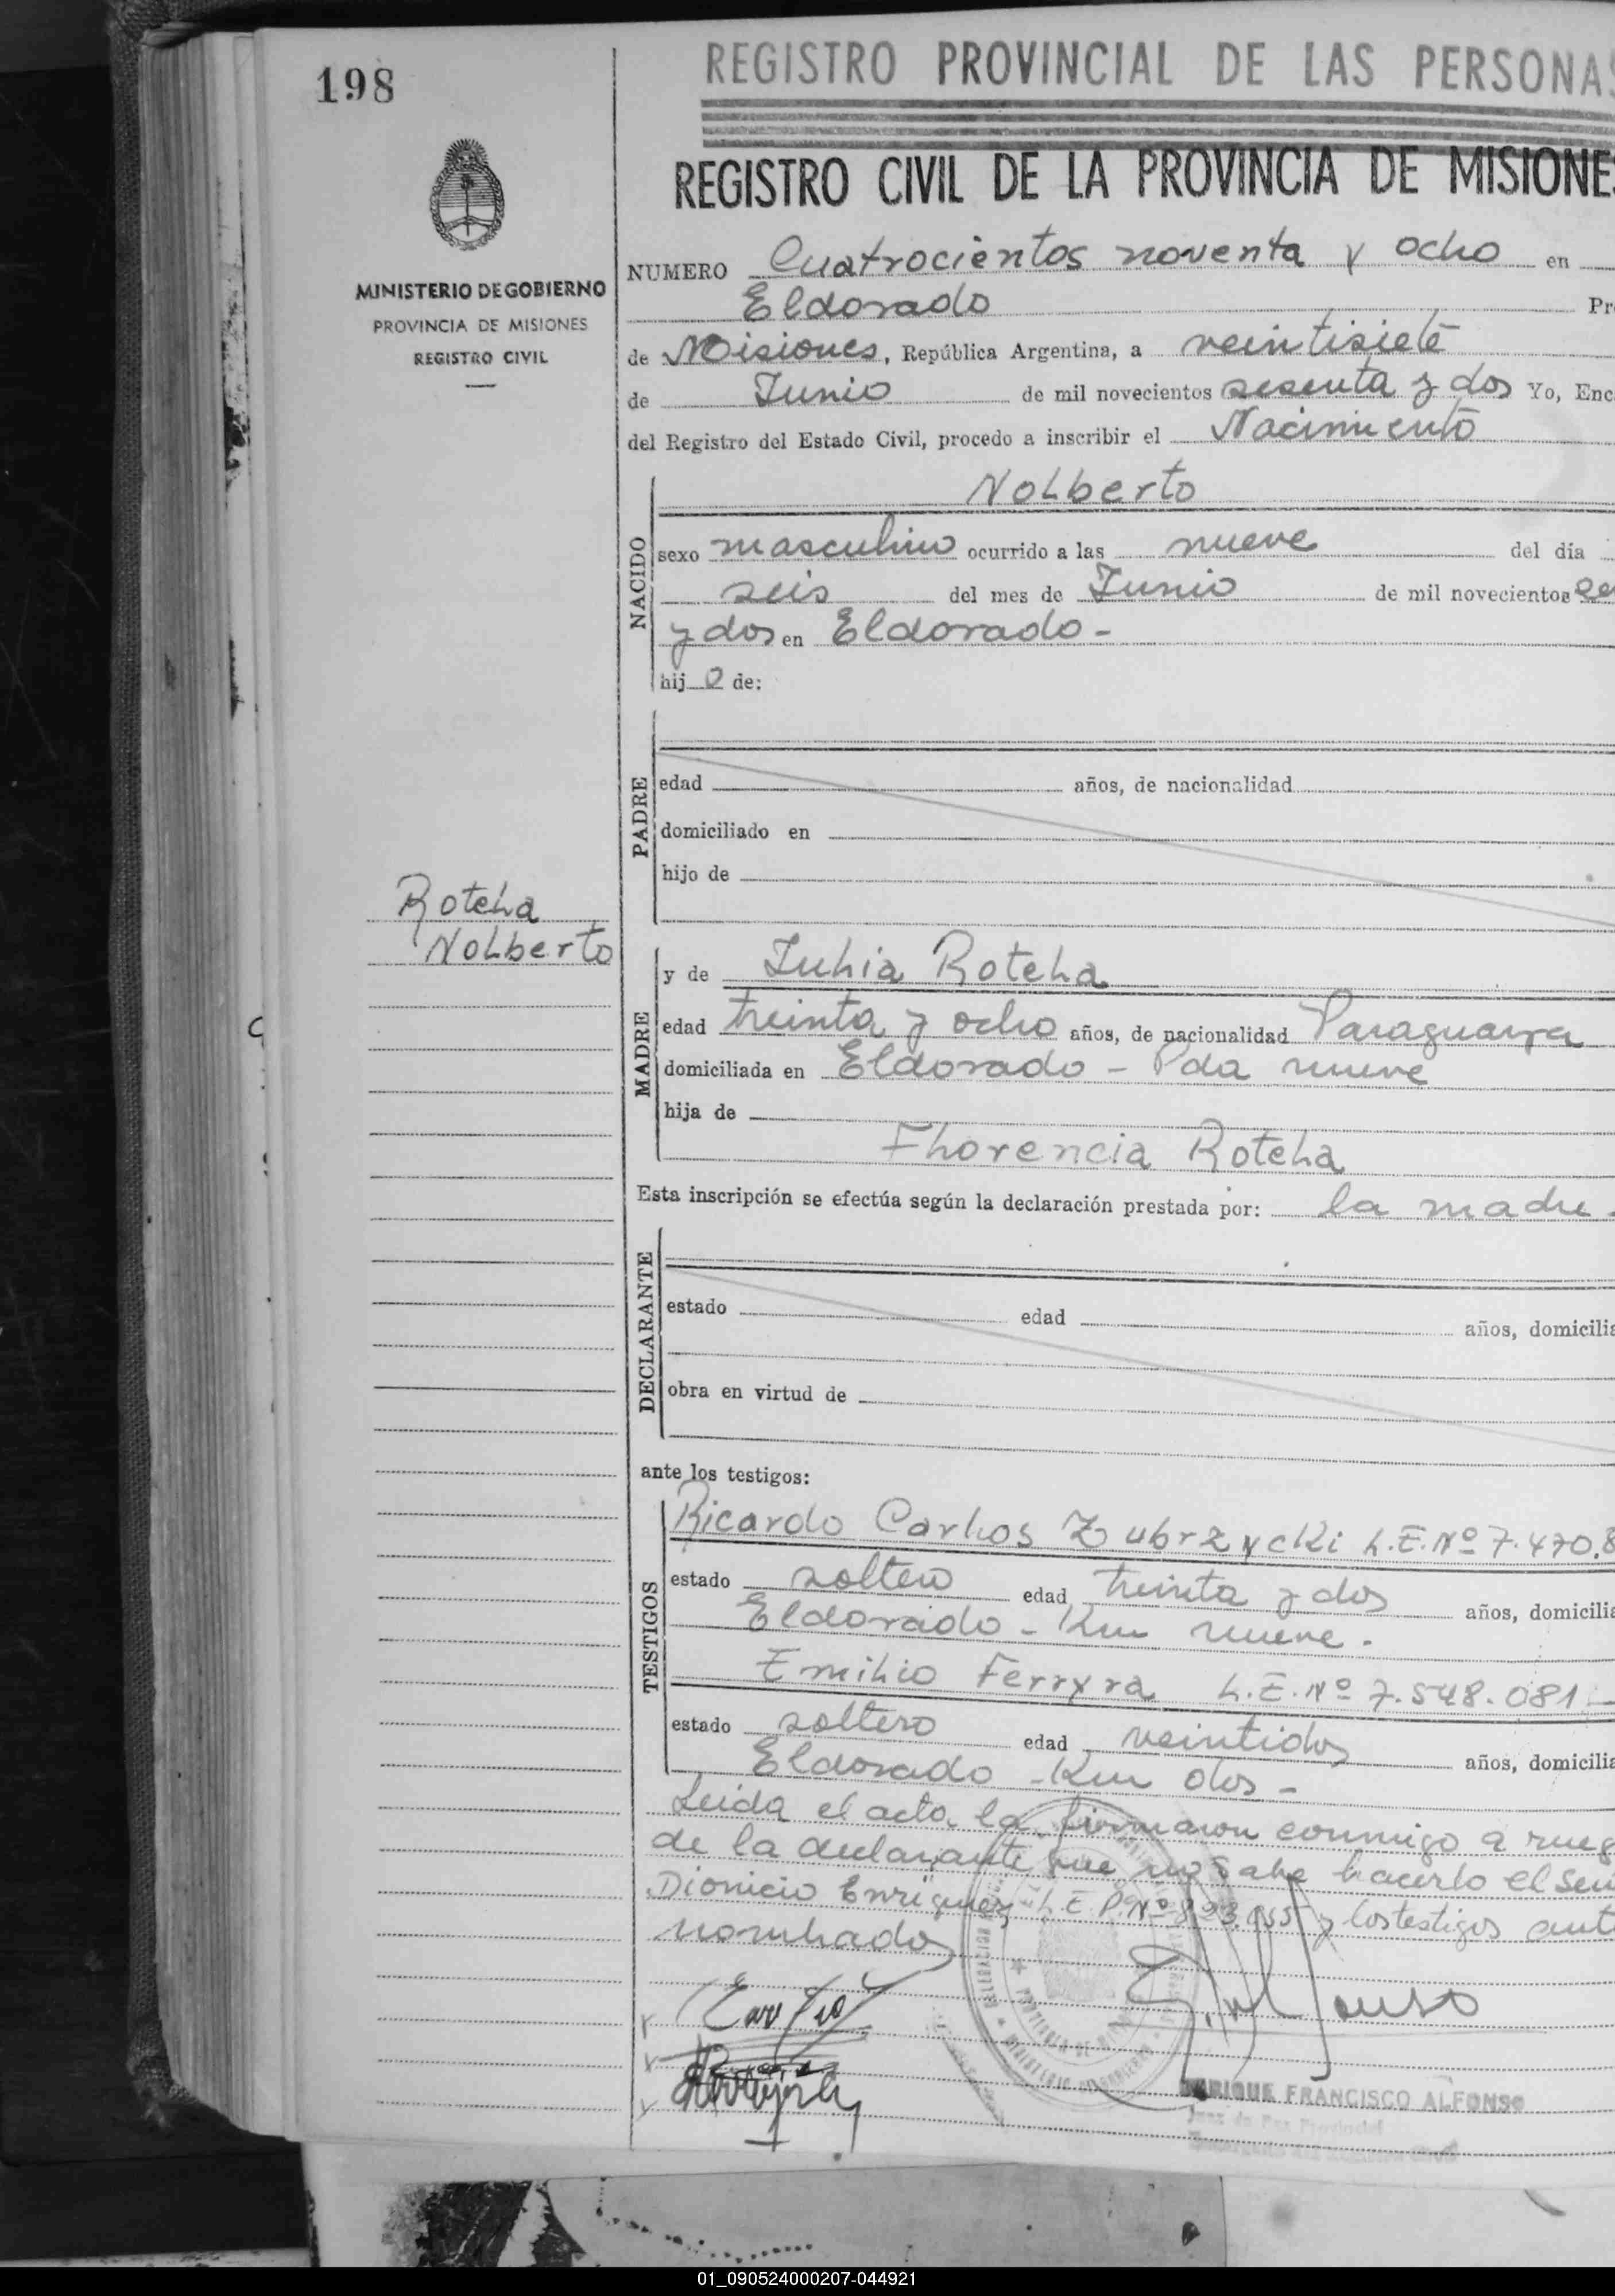 198
REGISTRO PROVINCIAL DE LAS PERSONAS
REGISTRO CIVIL DE LA PROVINCIA DE MISIONE
MINISTERIO DE GOBIERNO
PROVINCIA DE MISIONES
REGISTRO CIVIL
NUMERO Cuatrocientos noventa y ocho en
Eldorado Pr
de Misiones, República Argentina, a veintisiete
de Junio de mil novecientos sesenta y dos Yo, Enc
del Registro del Estado Civil, procedo a inscribir el Nacimiento
NACIDO
Nolberto
sexo masculino ocurrido a las nueve del día
seis del mes de Junio de mil novecientos se
y dos en Eldorado -
hij o de:
PADRE
edad años, de nacionalidad
domiciliado en
hijo de
Rotela
Nolberto
MADRE
y de Julia Rotela
edad treinta y ocho años, de nacionalidad Paraguaya
domiciliada en Eldorado - Pda nueve
hija de
Florencia Rotela
Esta inscripción se efectúa según la declaración prestada por: la madre -
DECLARANTE
estado edad años, domicilia
obra en virtud de
ante los testigos:
TESTIGOS
Ricardo Carlos Zubrzycki L.E.Nº 7.470.8
estado soltero edad treinta y dos años, domicilia
Eldorado - Km nueve -
Emilio Ferryra L.E.Nº 7.548.081 -
estado soltero edad veintidos años, domicilia
Eldorado - Km dos -
Leida el acta la firmaron conmigo a rueg
de la declarante que no sabe hacerlo el Señ
Dionicio Enriquez, L.E.P.Nº 823.055 y los testigos ant
nombrados
ENRIQUE FRANCISCO ALFONSO
Juez de Paz Provincial
01_090524000207-044921